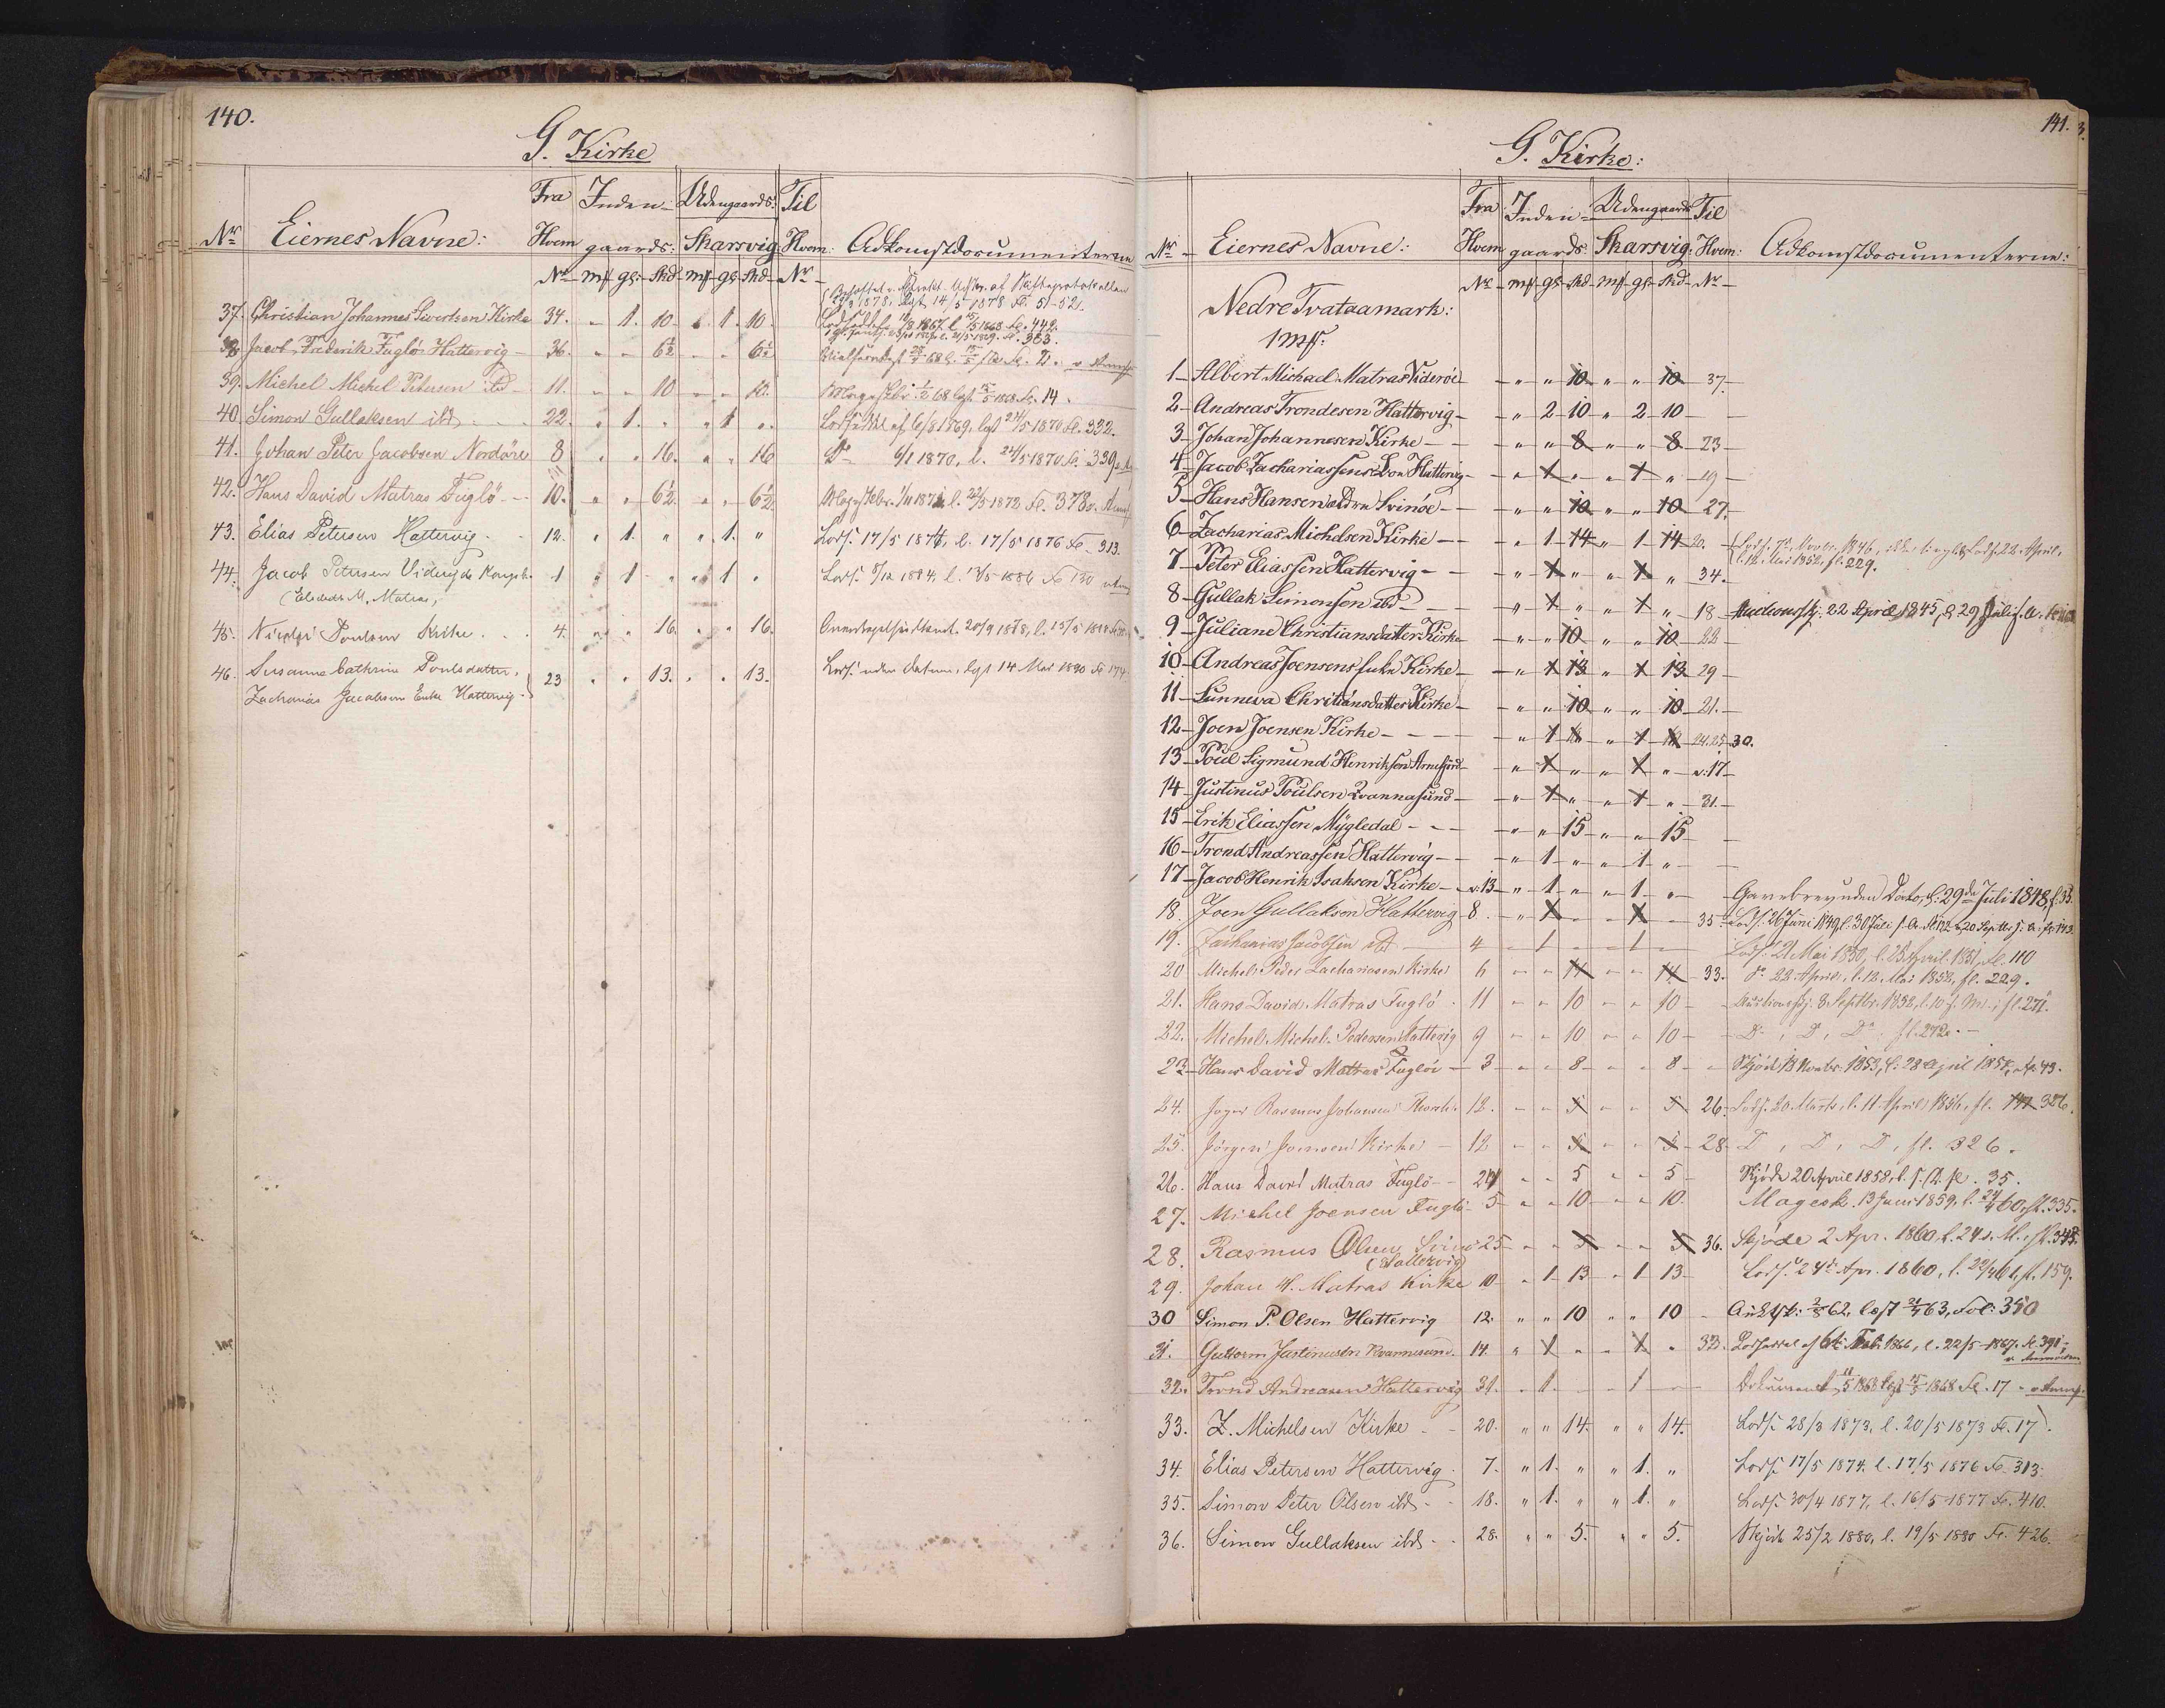 140.
G. Kirke
Fra Inden- Udengaards: Til
Nr Eiernes Navne: Hvem gaards: Skarsvig Hvem: Adkomstdocumenterne
Nr mk gs: skd mk gs skd Nr
1878. lgst 14/5 1878 Fl. 51-521.
37. Christian Johannes Sivertsen Kirke 34. " 1. 10. " 1. 10. 1867. l. 15/5 1868 Fl. 442.
38. Jacob Frederik Fuglö Hattervig 36. " " 6½ " " 6½
39. Michel Michel Petersen ibd 11. " " 10 " " 10. Mageskbr. ½ 68 lgst. 15/5 1868. Fl. 14.
40. Simon Gullaksen ibd 22. " 1. " " 1 ". Lodseddel af 6/8 1869, lgst 24/5 1870 Fl. 332.
41. Johan Peter Jacobsen Nordöre 8 " " 16. " " 16 Do 6/1 1870, l. 24/5 1870 Fl. 339
42. Hans David Matras Fuglö 10. " " 6½ " " 6½. Mageskbr. l. 22/5 1872 Fl. 378
43. Elias Petersen Hattervig 12. " 1. " " 1. " Lods. 17/5 1874, l. 17/5 1876 Fl. 313.
44. Jacob Petersen Viderejde 1 " 1 " " 1 " Lods. 8/12 1884. l. 13/5 1886 Fl 130
( M. Matras,
45. Nicolai Poulsen Kirke 4. " " 16. " " 16. 20/9 1878, l. 15/5
46. Susanne Cathrine Poulsdatter, 23 " " 13. " " 13. Lods. uden datum, lgst 14 Mai 1890 Fl 174.
Zacharias Jacobsens Enke Hattervig
141.
G. Kirke:
Fra Inden- Udengaards Til
Nr Eiernes Navne: Hvem gaards: Skarsvig: Hvem: Adkomstdocumenterne:
Nr mk gs skd mk gs skd Nr
Nedre Tvataamark:
1 mk:
1 Albert Michael Matras Viderøe " " 10 " " 10 37.
2 Andreas Trondesen Hattervig " 2 10 " 2 10
3 Johan Johannesen Kirke " " 8 " " 8 23
4 Jacob Zachariassens Hattervig " 1 " " 1 " 19
5 Hans Hansen Svinøe " " 10 " " 10 27.
6 Zacharias Michelsen Kirke " 1 14 " 1 14 20. 1846, Lods. 22 April,
l. 12. Mai 1852, fl. 229.
7 Peter Eliassen Hattervig " 1 " " 1 " 34.
8 Gullak Simonsen ibd " 1 " " 1 " 18 Auctionsskj: 22 April 1845, l. 29 Juli s. A.
9 Juliane Christiansdatter Kirke " " 10 " " 10 22
10 Andreas Joensens Enke Kirke " 1 13 " 1 13 29
11 Sunneva Christiansdatter Kirke " " 10 " " 10 21.
12 Joen Joensen Kirke " 1 " 1 24. 25 30.
13 Poul Sigmund Henriksen Arnefjord " 1 " " 1 " v: 17
14 Justinus Poulsen Qvannasund " 1 " " 1 " 31.
15 Erik Eliassen Mÿgledal " " 15 " " 15
16 Trond Andreassen Hattervig " 1 " " 1 "
17 Jacob Henrik Isaksen Kirke v: 13 " 1 " " 1 " Gavebrev uden Dato, l: 29de Juli 1848, f. 35.
18. Joen Gullaksen Hattervig 8. " 1 " " 1 " 35 Lods. 26 Juni 1849, l. 30 Juli s. A.
19. Zacharias Jacobsen ibd 4 " 1 " " 1 " Lods. 21 Mai 1850, l. 25 April 1851, Fl. 110
20 Michel Peder Zachariasen Kirke 6 " " 14 " " 14 33. Do 22 April, l. 12. Mai 1852, fl. 229.
21. Hans David Matras Fuglö 11 " " 10 " " 10 Auctionsskj. 8. Septbr. 1852, l. 10 s. M., fl. 271.
22. Michel Michel Pedersen Hattervig 9 " " 10 " " 10 Do, Do, Do fl. 272.
23 Hans David Matras Fugløe 3 " " 8 " " 8 Skjöd 18 Novbr. 1853, l: 28 April 1854, fl. 43.
24. Joger Rasmus Johansen 12. " " 5 " " 5 26 Lods. 20. Marts, l. 11. April 1856, fl. 326.
25. Jörgen Joensen Kirke 12 " " 5 " " 5 28 Do, Do, Do, fl. 326.
26. Hans David Matras Fuglö 24 " " 5 " " 5 Skjöde 20 April 1858, l. s. D. fl. 35.
27. Michel Joensen Fuglö 5 " " 10 " " 10. Magesk. 13 Juni 1859, l. 24/4 60, fl. 335.
28. Rasmus Olsen Svinö 25 " " 5 " " 5 36. Skjöde 2 Apr. 1860, l. 24 s. M., fl. 348.
(Hattervig)
29. Johan H. Matras Kirke 10 " 1 13 " 1 13 Lods. 24de Apr. 1860, l. 22/4 61, fl. 159.
30 Simon P. Olsen Hattervig 12. " " 10 " " 10 62, lgst 63, Fol: 350
31. Guttorm Justinussen Kvannesund 14. " 1 " " 1 " 32. Lodseddel af 1866, l. 22/5 1867. Fl. 391;
32. Trond Andreasen Hattervig 31. " 1. " " 1 " Dokument 1868 lgst 15/5 1868 Fl. 17
33. Z. Michelsen Kirke 20. " " 14. " " 14. Lods. 28/3 1873, l. 20/5 1873 Fl. 17.
34. Elias Petersen Hattervig 7. " 1. " " 1. " Lods. 17/5 1874. l. 17/5 1876 Fl. 313.
35. Simon Peter Olsen ibd 18. " 1. " " 1. " Lods. 30/4 1877, l. 16/5 1877 Fl. 410.
36. Simon Gullaksen ibd 28. " " 5. " " 5. Skjöde 25/2 1880, l. 19/5 1880 Fl. 426.